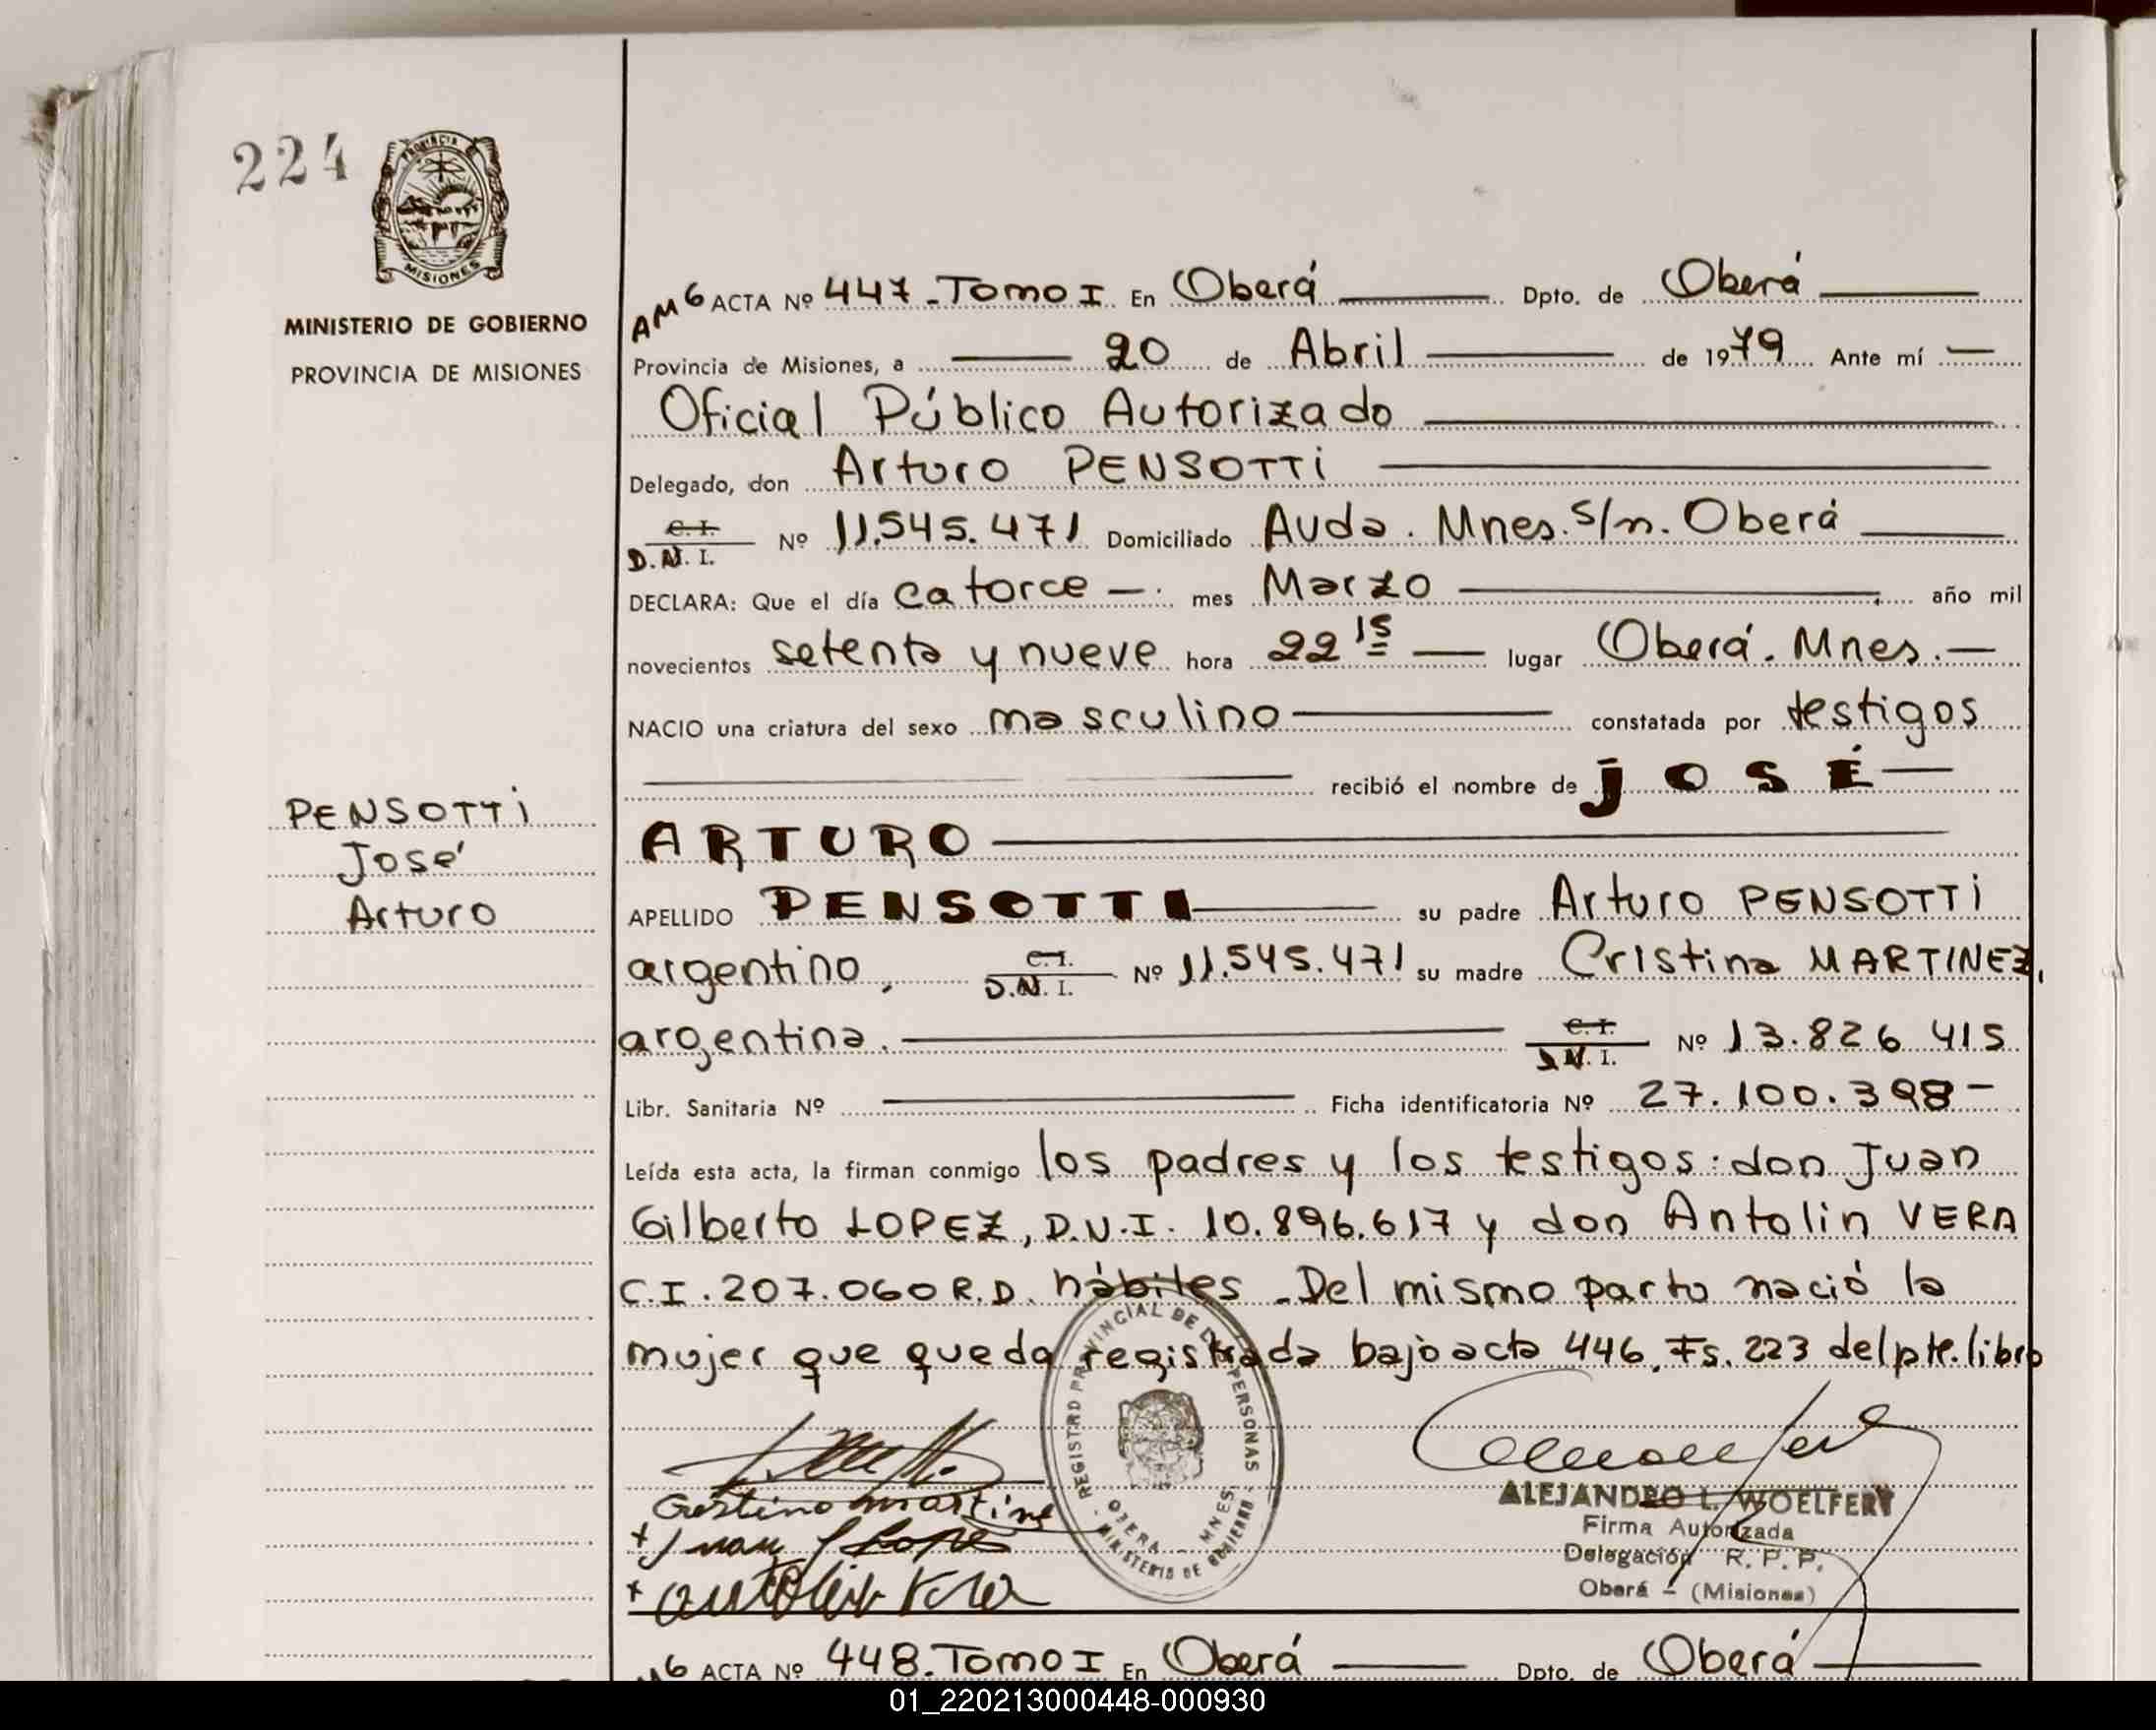 224
PROVINCIA
MISIONES
MINISTERIO DE GOBIERNO
PROVINCIA DE MISIONES
AM6 ACTA Nº 447 - Tomo I En Oberá Dpto. de Oberá
Provincia de Misiones, a 20 de Abril de 1979 Ante mí
Oficial Público Autorizado
Delegado, don Arturo PENSOTTI
C.I. D.N.I. Nº 11.545.471 Domiciliado Avda. Mnes. s/n. Oberá
DECLARA: Que el día catorce mes Marzo año mil
novecientos setenta y nueve hora 22 15 lugar Oberá. Mnes.
NACIO una criatura del sexo masculino constatada por testigos
recibió el nombre de JOSÉ
ARTURO
APELLIDO PENSOTTI su padre Arturo PENSOTTI
argentino, C.I. D.N.I. Nº 11.545.471 su madre Cristina MARTINEZ,
argentina. C.I. D.N.I. Nº 13.826 415
Libr. Sanitaria Nº Ficha identificatoria Nº 27.100.398-
Leída esta acta, la firman conmigo los padres y los testigos: don Juan
Gilberto LOPEZ, D.N.I. 10.896.617 y don Antolin VERA
C.I. 207.060 R.D. hábiles - Del mismo parto nació la
mujer que queda registrada bajo acta 446. Fs. 223 del pte. libro
PENSOTTI
José
Arturo
REGISTRO PROVINCIAL DE LAS PERSONAS
OBERA - MNES.
MINISTERIO DE GOBIERNO
ALEJANDRO L. WOELFERT
Firma Autorizada
Delegación R. P. P.
Oberá - (Misiones)
M6 ACTA Nº 448. Tomo I En Oberá Dpto. de Oberá
01_220213000448-000930